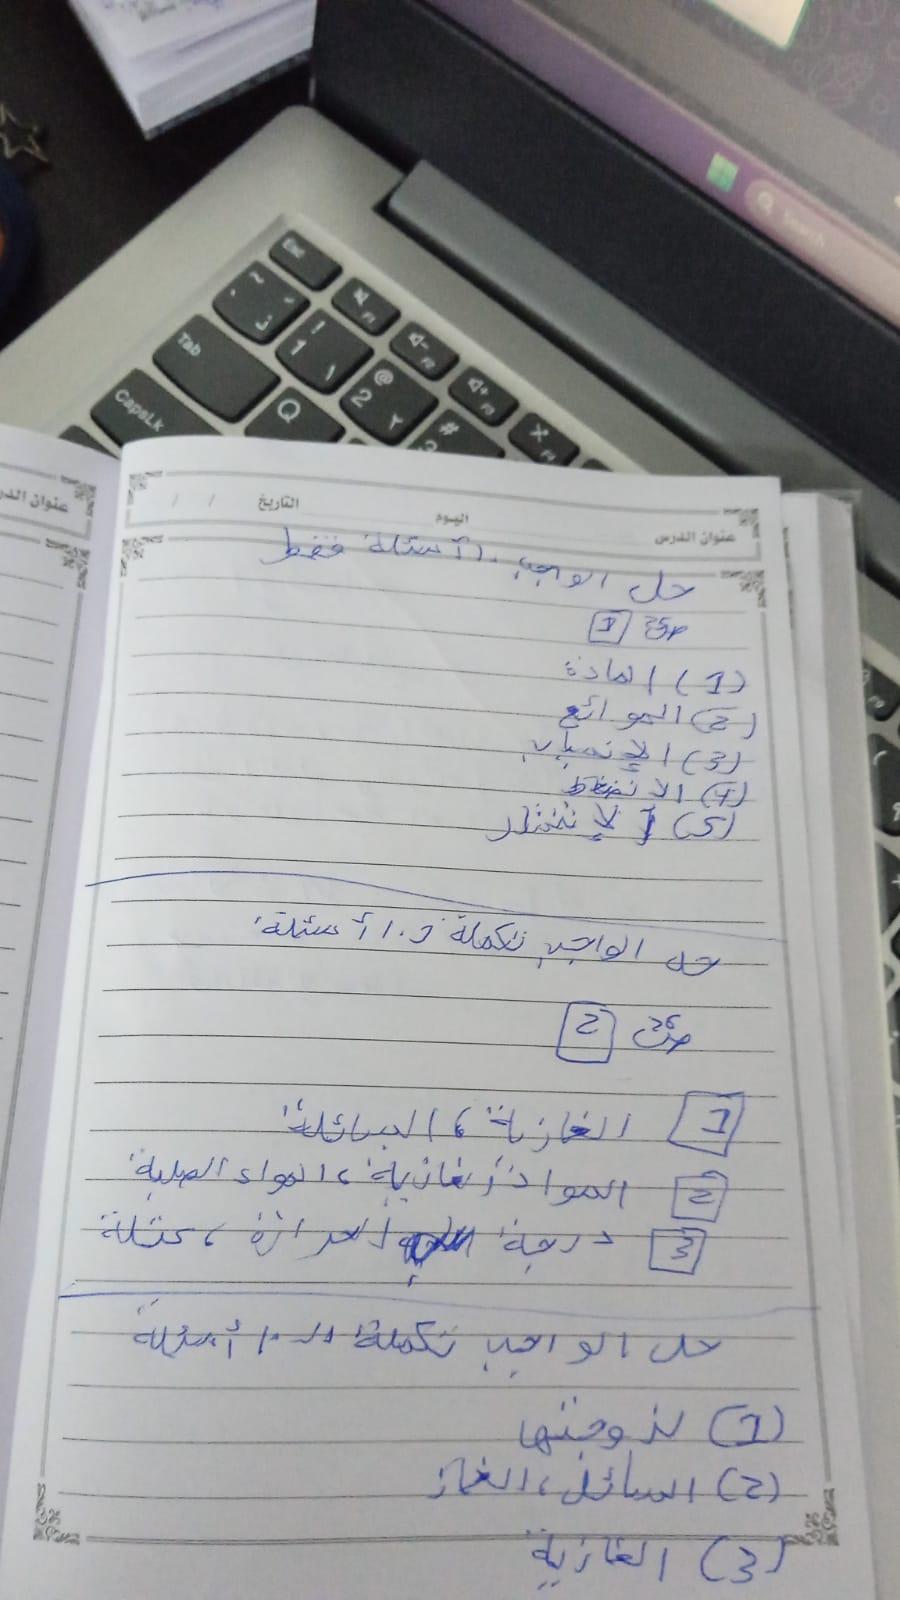 Search
Esc
F1
F2
F3
F4
Tab
1
@
2
#
Q
CapsLk
عنوان الدرس
اليوم
التاريخ / /
حل الواجب ١٠ أسئلة فقط
ص25 1
(1) المادة
(2) الموائع
(3) الإنسياب
(4) الانضغاط
(5) الإنتشار
حل الواجب تكملة و١٠ أسئلة
ص26 2
1 الغازية، السائلة
2 المواد الغازية، المواد الصلبة
3 درجة الحرارة، كتلة
حل الواجب تكملة الـ ١٠ أسئلة
(1) لزوجتها
(2) السائل، الغاز
(3) الغازية